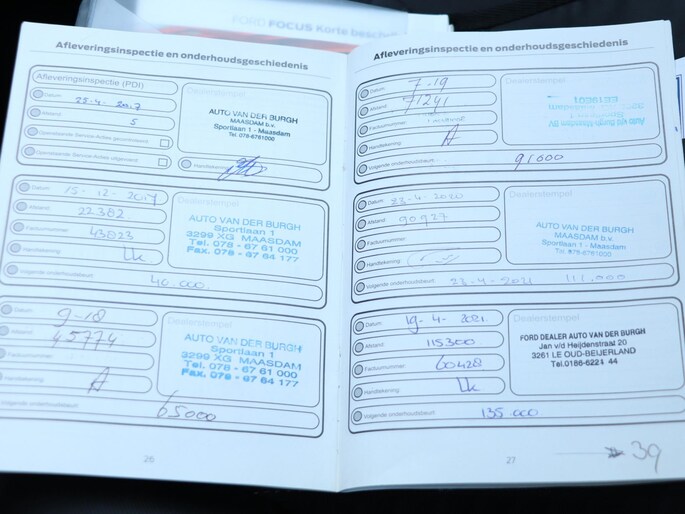 FORD FOCUS Korte
Afleveringsinspectie en onderhoudsgeschiedenis
Afleveringsinspectie (PDI)
Datum: 25-4-2017
Afstand: 5
Openstaande Service-Acties gecontroleerd:
Openstaande Service-Acties uitgevoerd:
Dealerstempel
AUTO VAN DER BURGH
MAASDAM b.v.
Sportlaan 1 - Maasdam
Tel. 078-6761000
Handtekening:
Datum: 15-12-2017
Afstand: 22.382
Factuurnummer: 43823
Handtekening:
Volgende onderhoudsbeurt: 40.000
Dealerstempel
AUTO VAN DER BURGH
Sportlaan 1
3299 XG MAASDAM
Tel. 078 - 67 61 000
Fax. 078 - 67 64 177
Datum: 9-18
Afstand: 45774
Factuurnummer:
Handtekening:
Volgende onderhoudsbeurt: 65000
Dealerstempel
AUTO VAN DER BURGH
Sportlaan 1
3299 XG MAASDAM
Tel. 078 - 67 61 000
Fax. 078 - 67 64 177
26
Afleveringsinspectie en onderhoudsgeschiedenis
Datum: 7-19
Afstand: 71241
Factuurnummer:
Handtekening:
Volgende onderhoudsbeurt: 91000
Dealerstempel
Auto v/d Burgh Maasdam BV
Datum: 23-4-2020
Afstand: 90927
Factuurnummer:
Handtekening:
Volgende onderhoudsbeurt: 23-4-2021 111.000
Dealerstempel
AUTO VAN DER BURGH
MAASDAM b.v.
Sportlaan 1 - Maasdam
Tel. 078-6761000
Datum: 19-4-2021
Afstand: 115300
Factuurnummer: 60428
Handtekening:
Volgende onderhoudsbeurt: 135.000
Dealerstempel
FORD DEALER AUTO VAN DER BURGH
Jan v/d Heijdenstraat 20
3261 LE OUD-BEIJERLAND
Tel.0186-6221 44
27
39